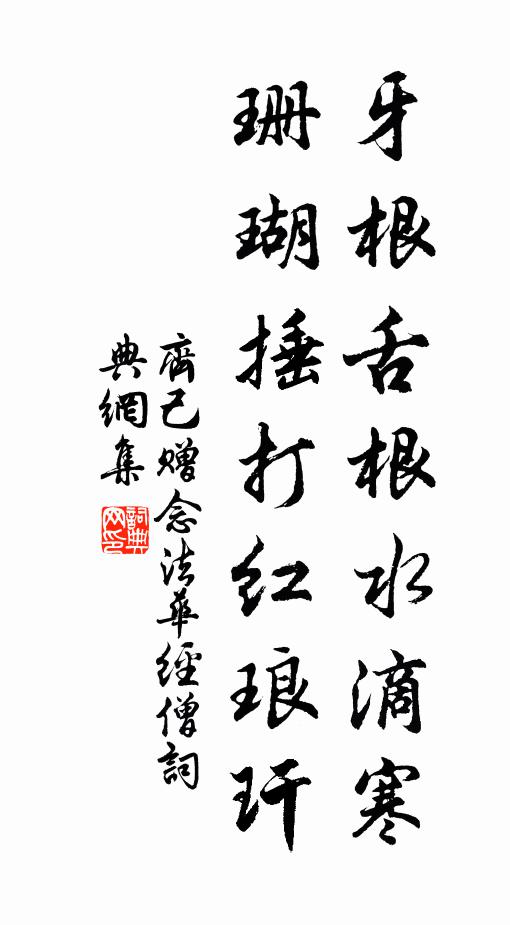 牙根舌根水滴寒
珊瑚捶打红琅玕
齊己赠念法華經僧詞
典網集
詞典
网印